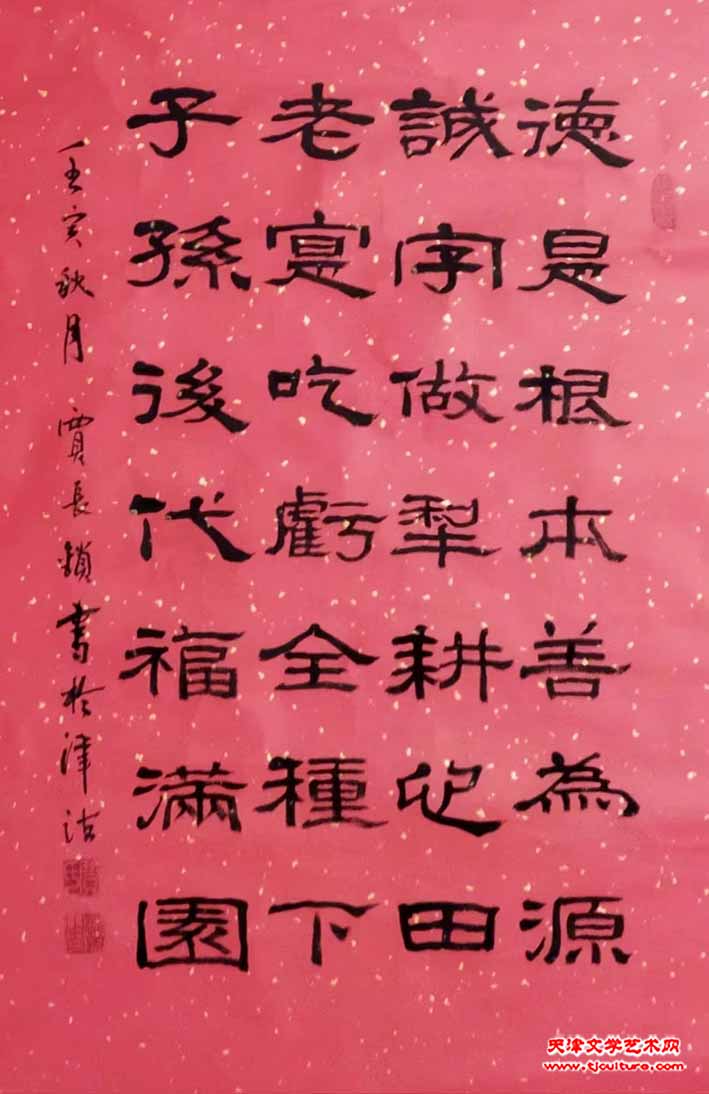 徳是根本善為源
誠字做犁耕心田
老寔吃虧全種下
子孫後代福滿園
壬寅秋月 賈長鎖書於津沽
天津文学艺术网
www.tjculture.com